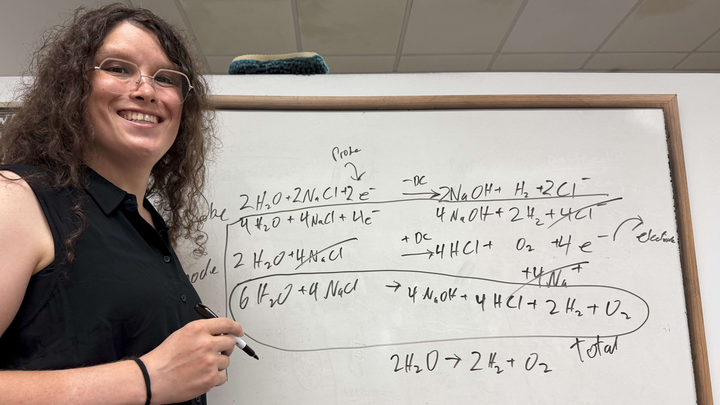 Probe
2 H₂O + 2NaCl + 2 e⁻ –DC → 2NaOH + H₂ + 2Cl⁻
4 H₂O + 4NaCl + 4e⁻ 4 NaOH + 2 H₂ + 4Cl⁻
2 H₂O + 4NaCl +DC → 4HCl + O₂ + 4 e⁻ electrode
+ 4 Na⁺
6 H₂O + 4 NaCl → 4 NaOH + 4 HCl + 2 H₂ + O₂
Total
2H₂O → 2H₂ + O₂